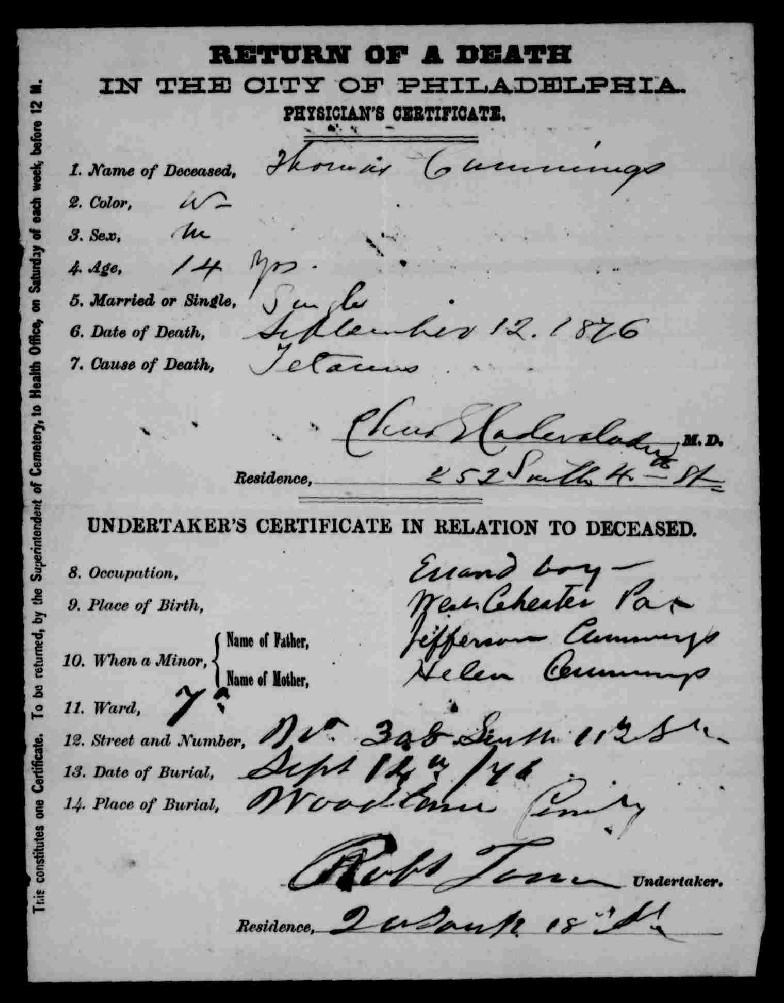 RETURN OF A DEATH
IN THE CITY OF PHILADELPHIA.
PHYSICIAN'S CERTIFICATE.
1. Name of Deceased, Thomas Cummings
2. Color, W
3. Sex, M
4. Age, 14 Yrs.
5. Married or Single, Single
6. Date of Death, September 12. 1876
7. Cause of Death, Tetanus
M. D.
Residence, 252 South 4th St
UNDERTAKER'S CERTIFICATE IN RELATION TO DECEASED.
8. Occupation, Errand boy
9. Place of Birth, West Chester Pa
10. When a Minor, Name of Father, Jefferson Cummings
Name of Mother, Helen Cummings
11. Ward, 7
12. Street and Number, No. South
13. Date of Burial, Sept 14 /76
14. Place of Burial, Woodlawn
Robt Undertaker.
Residence, 20 South 18th St
This constitutes one Certificate. To be returned, by the Superintendent of Cemetery, to Health Office, on Saturday of each week, before 12 M.